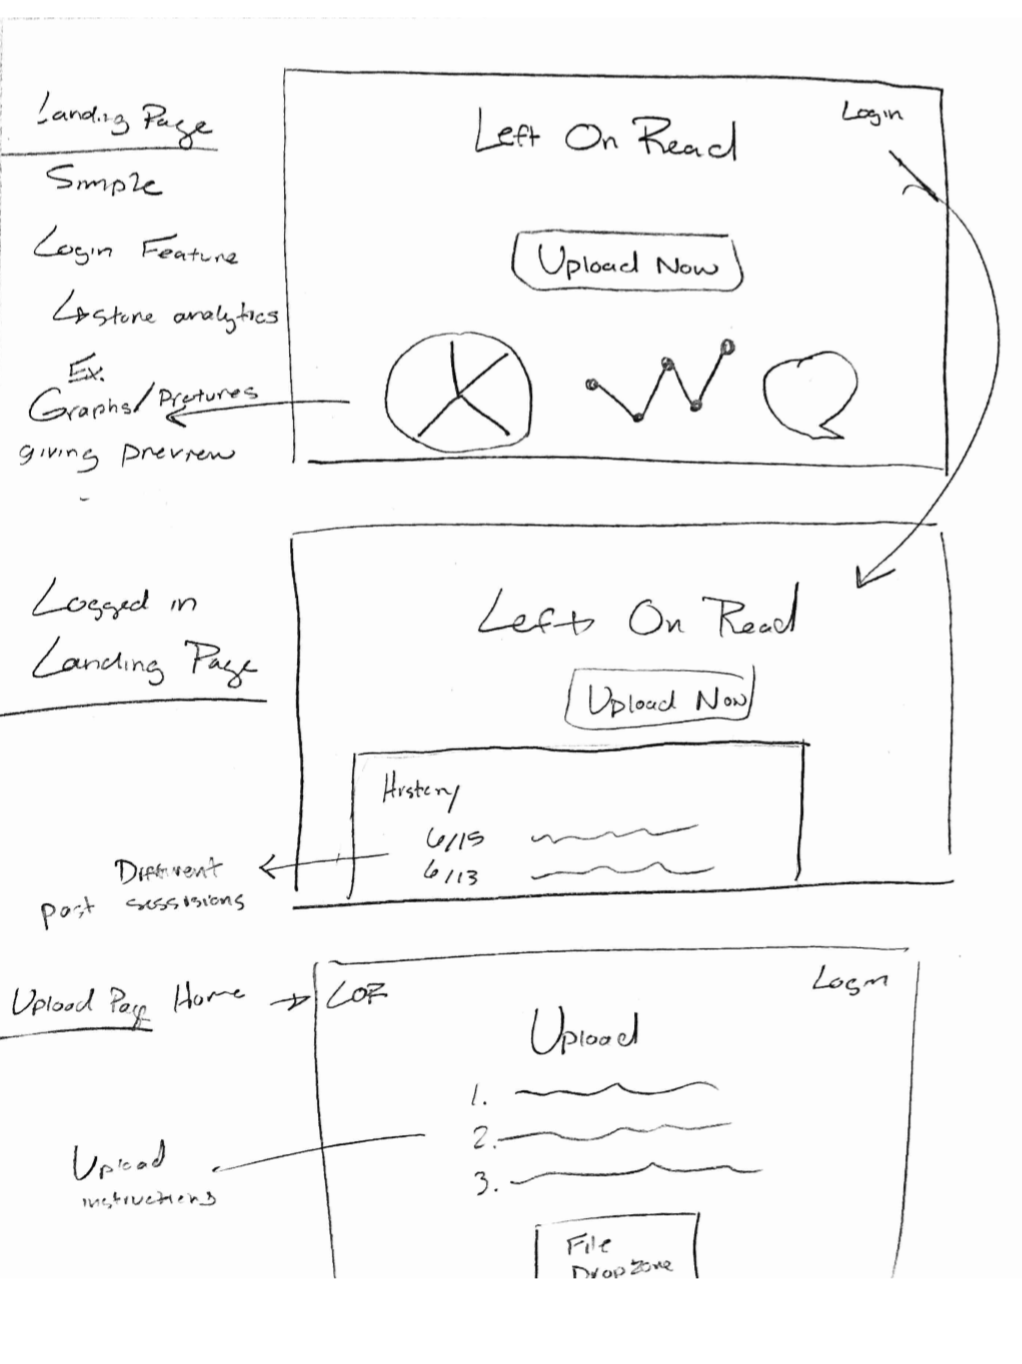 Landing Page
Simple
Login Feature
↳ store analytics
Ex.
Graphs/Pictures
giving preview
Left On Read
Login
Upload Now
Logged in
Landing Page
Left On Read
Upload Now
History
6/15
6/13
Different
past sesssions
Upload Page Home
LOR
Login
Upload
1.
2.
3.
Upload
instructions
File
Dropzone